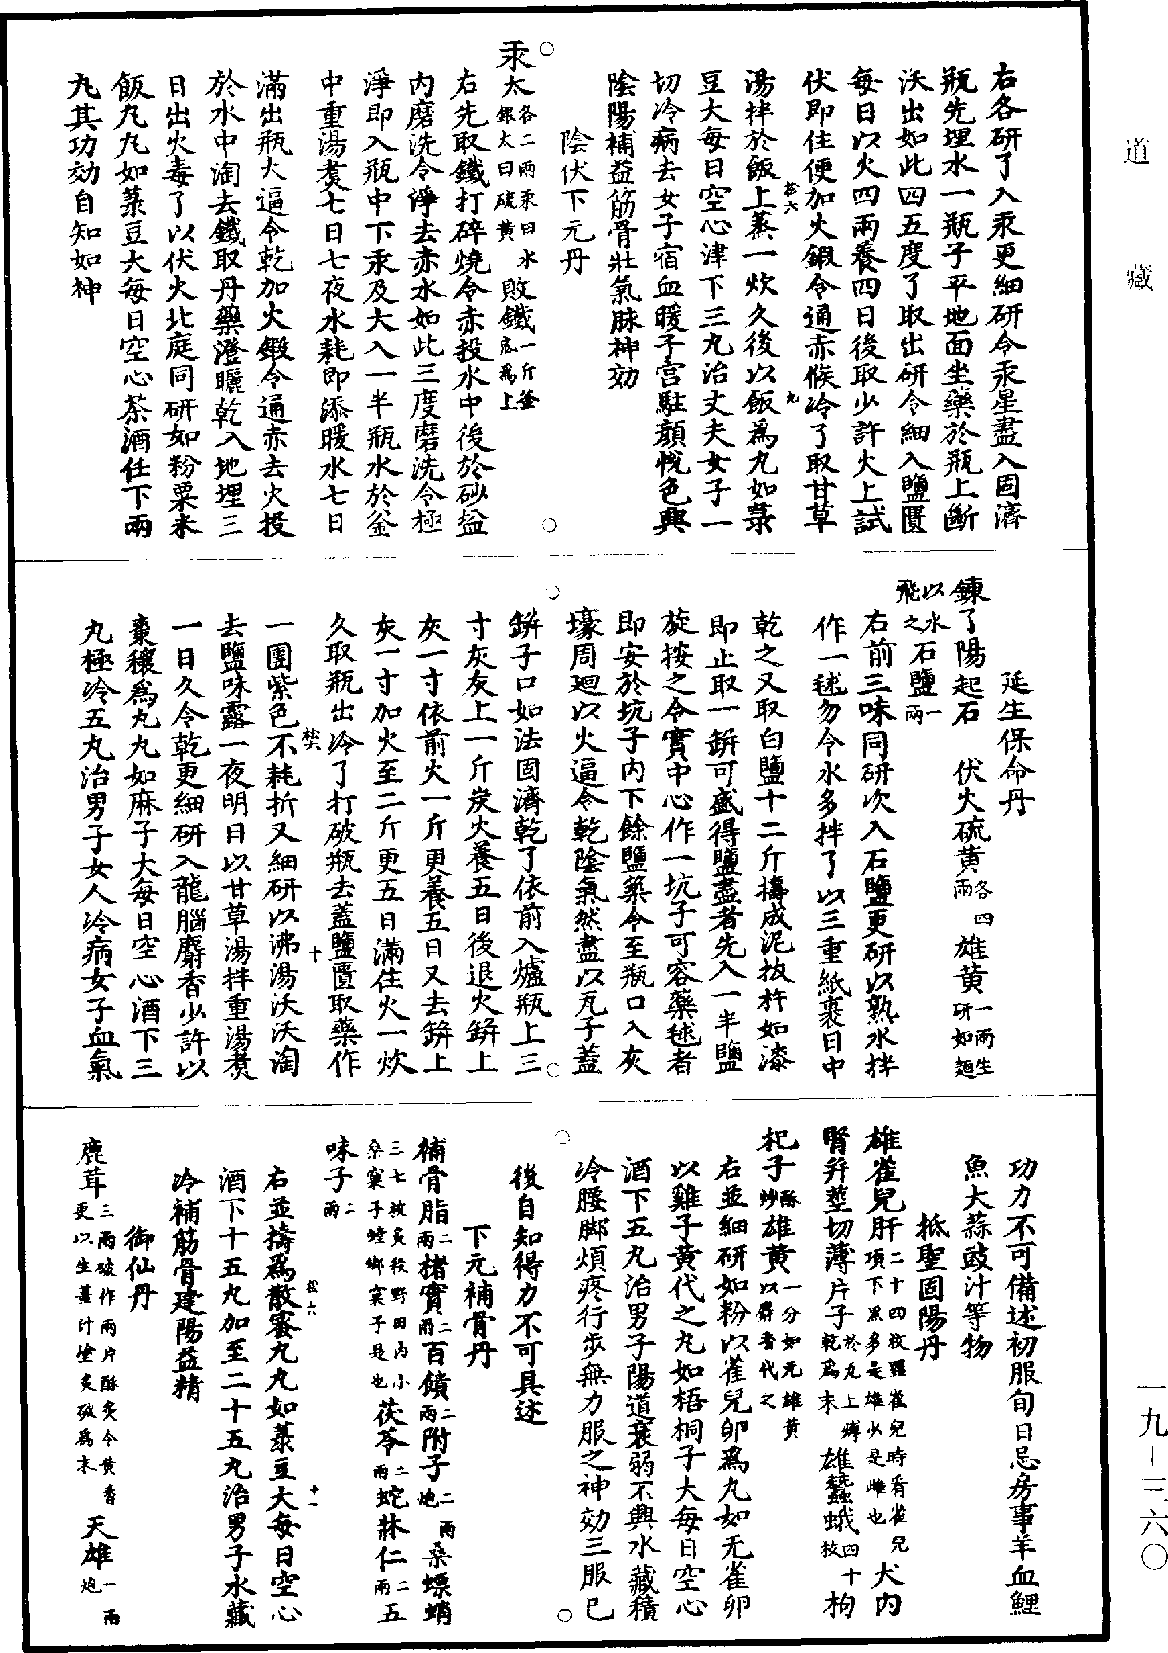 道藏
右各研了入汞更細研令汞星盡入固濟
瓶先埋水一瓶子平地面坐藥於瓶上斷
沃出如此四五度了取出研令細入鹽匱
每日以火四兩養四日後取少許火上試
伏即住便加火鍜令通赤候冷了取甘草
湯拌於飯上蒸一炊久後以飯為丸如菉
豆大每日空心津下三丸治丈夫女子一
切冷病去女子宿血暖子宮駐顏悅色興
陰陽補益筋骨壯氣脉神効
陰伏下元丹
汞太各二兩汞曰水銀太曰硫黃敗鐵一斤釜底為上
右先取鐵打碎燒令赤投水中後於砂盆
內磨洗令淨去赤水如此三度磨洗令極
淨即入瓶中下汞及大入一半瓶水於釜
中重湯煑七日七夜水耗即添暖水七日
滿出瓶大逼令乾加火鍜令通赤去火投
於水中淘去鐵取丹藥澄曬乾入地埋三
日出火毒了以伏火北庭同研如粉粟米
飯丸丸如菉豆大每日空心茶酒任下兩
丸其功効自知如神
延生保命丹
鍊了陽起石 伏火硫黃各四兩雄黄一兩生研如麵
以水飛之石鹽一兩
右前三味同研次入石鹽更研以熟水拌
作一毬勿令水多拌了以三重紙裹日中
乾之又取白鹽十二斤擣成泥抜杵如漆
即止取一缾可盛得鹽盡者先入一半鹽
旋按之令實中心作一坑子可容藥毬者
即安於坑子內下餘鹽築令至瓶口入灰
壕周廻以火逼令乾陰氣然盡以瓦子蓋
缾子口如法固濟乾了依前入爐瓶上三
寸灰灰上一斤炭火養五日後退火缾上
灰一寸依前火一斤更養五日又去缾上
灰一寸加火至二斤更五日滿住火一炊
久取瓶出冷了打破瓶去蓋鹽匱取藥作
一團紫色不耗折又細研以沸湯沃沃淘
去鹽味露一夜明日以甘草湯拌重湯煑
一日久令乾更細研入龍腦麝香少許以
棗穰為丸丸如麻子大每日空心酒下三
丸極冷五丸治男子女人冷病女子血氣
功力不可備述初服旬日忌房事羊血鯉
魚大蒜豉汁等物
秪聖固陽丹
雄雀兒肝二十四枚揀雀兒時看雀兒項下黑多是雄少是雌也犬內
腎并莖切薄片子於丸上縛乾為末雄蠶蛾四十枚枸
杞子酥炒雄黃一分如无雄黃以麝香代之
右並細研如粉以雀兒卵為丸如无雀卵
以雞子黃代之丸如梧桐子大每日空心
酒下五丸治男子陽道衰弱不興水藏積
冷腰脚煩疼行步無力服之神効三服已
後自知得力不可具述
下元補骨丹
補骨脂二兩楮實二兩百饋二兩附子二兩炮桑螵蛸
三七枚炙殺野田內小桑窠子螳螂窠子是也茯苓二兩蛇牀仁二兩五
味子二兩
右並擣為散蜜丸丸如菉豆大每日空心
酒下十五丸加至二十五丸治男子水藏
冷補筋骨建陽益精
御仙丹
鹿茸三兩破作兩片酥炙令黃香更以生薑汁塗炙破為末天雄一兩炮
一九－三六〇